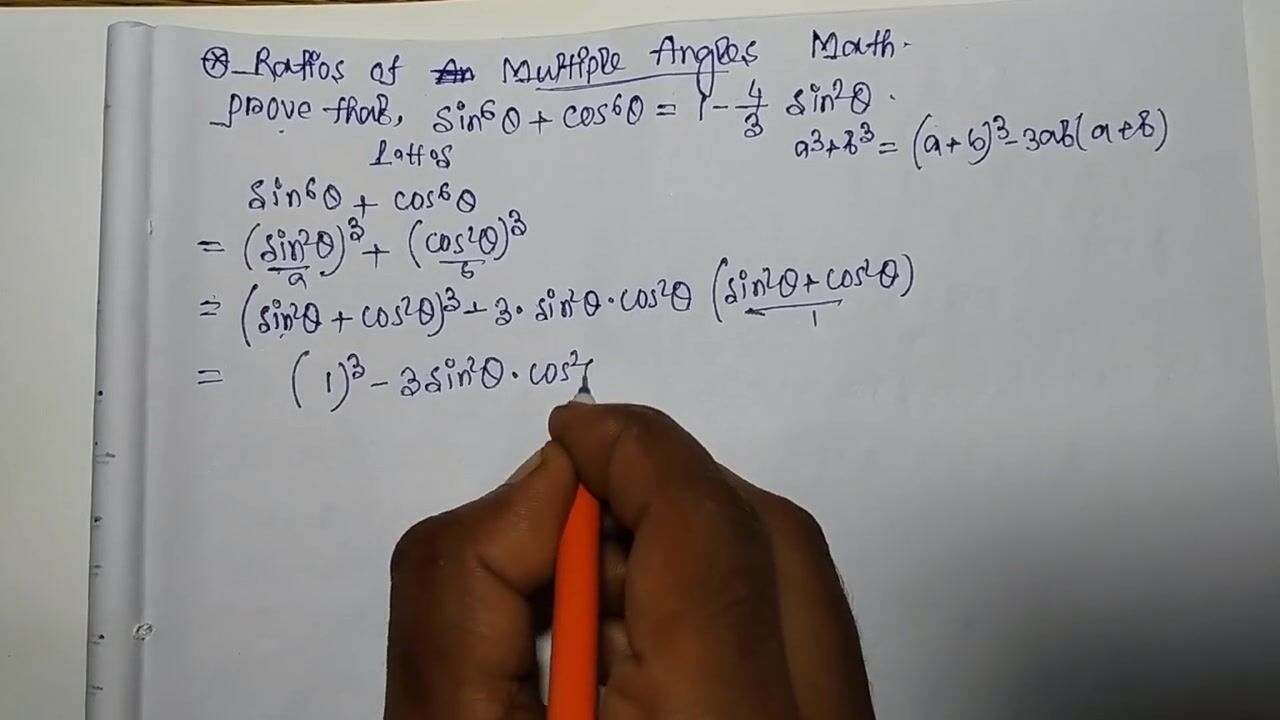 ⊛ Ratios of Multiple Angles Math.
Prove that, sin⁶θ + cos⁶θ = 1 - 4/3 sin²θ.
a³+b³ = (a+b)³-3ab(a+b)
sin⁶θ + cos⁶θ
= (sin²θ)³ + (cos²θ)³
a b
= (sin²θ + cos²θ)³ - 3. sin²θ. cos²θ (sin²θ + cos²θ)
1
= (1)³ - 3 sin²θ. cos²